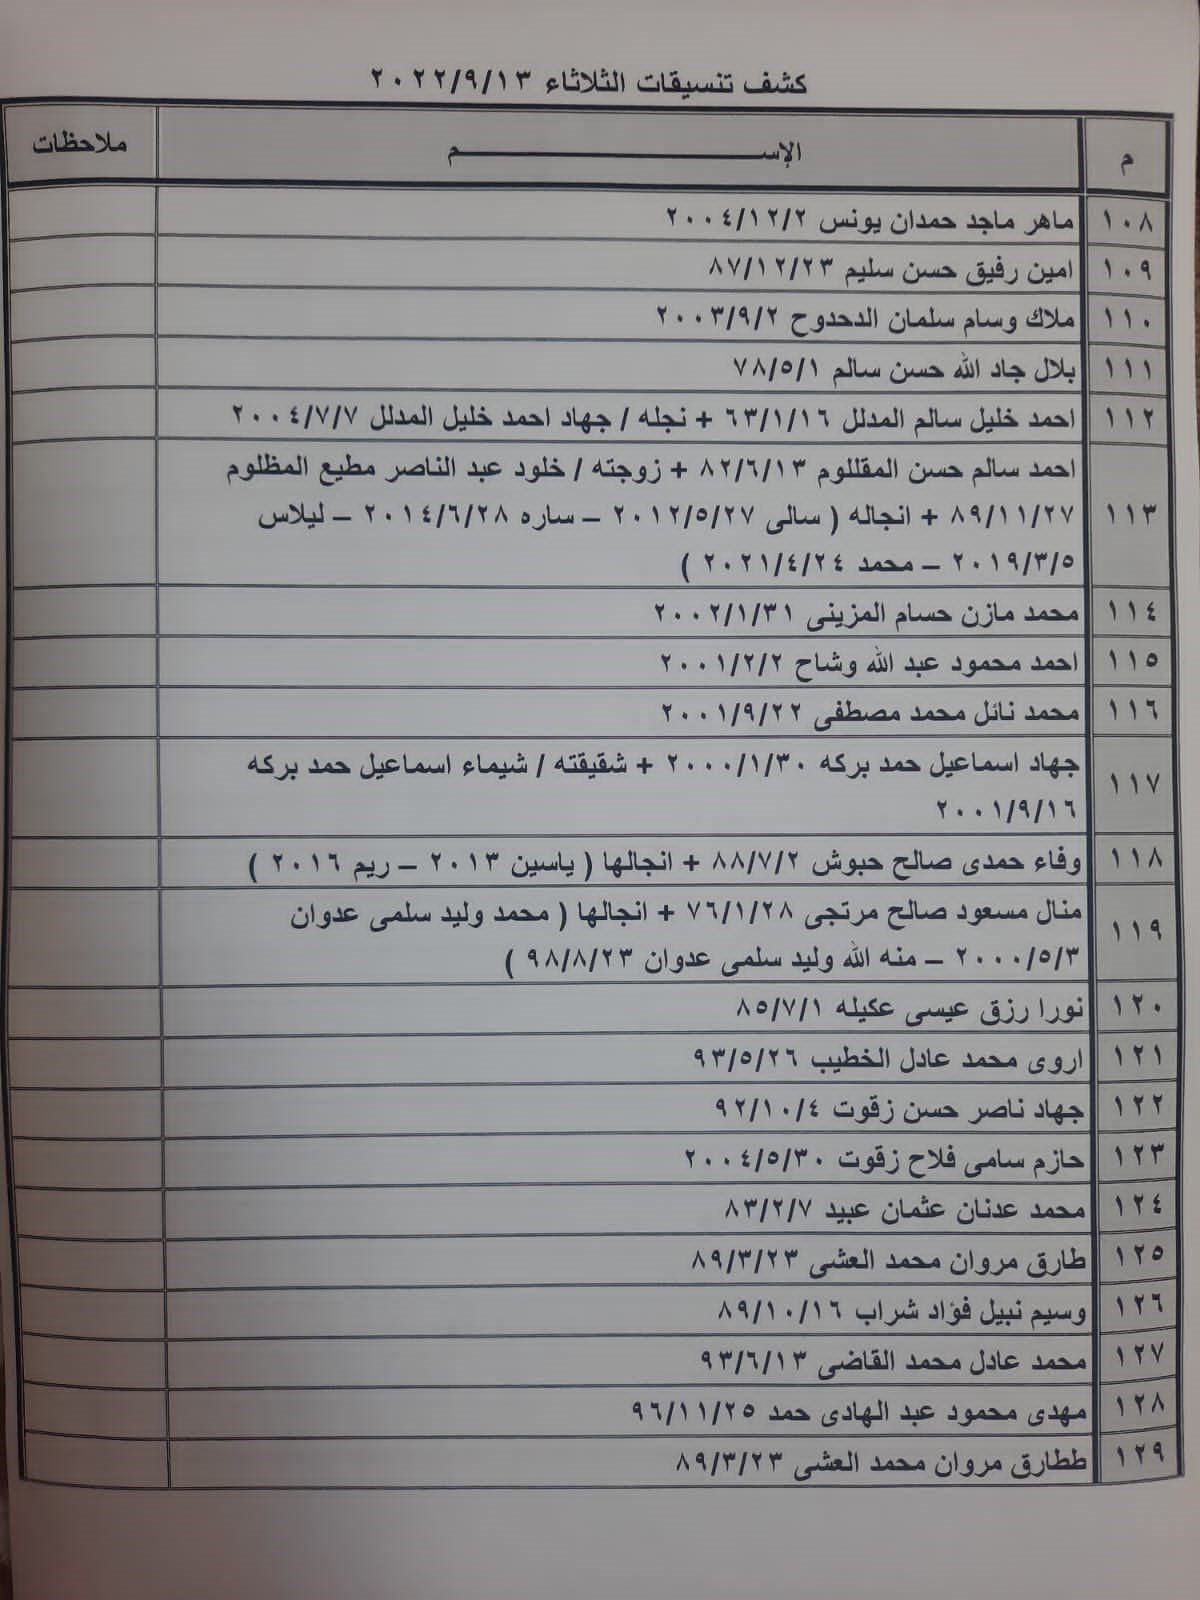 كشف تنسيقات الثلاثاء ٢٠٢٢/٩/١٣
م الإســـــــــم ملاحظات
١٠٨ ماهر ماجد حمدان يونس ٢٠٠٤/١٢/٢
١٠٩ امين رفيق حسن سليم ٨٧/١٢/٢٣
١١٠ ملاك وسام سلمان الدحدوح ٢٠٠٣/٩/٢
١١١ بلال جاد الله حسن سالم ٧٨/٥/١
١١٢ احمد خليل سالم المدلل ٦٣/١/١٦ + نجله / جهاد احمد خليل المدلل ٢٠٠٤/٧/٧
١١٣ احمد سالم حسن المقللوم ٨٢/٦/١٣ + زوجته / خلود عبد الناصر مطيع المظلوم
٨٩/١١/٢٧ + انجاله ( سالى ٢٠١٢/٥/٢٧ – ساره ٢٠١٤/٦/٢٨ – ليلاس
٢٠١٩/٣/٥ – محمد ٢٠٢١/٤/٢٤ )
١١٤ محمد مازن حسام المزينى ٢٠٠٢/١/٣١
١١٥ احمد محمود عبد الله وشاح ٢٠٠١/٢/٢
١١٦ محمد نائل محمد مصطفى ٢٠٠١/٩/٢٢
١١٧ جهاد اسماعيل حمد بركه ٢٠٠٠/١/٣٠ + شقيقته / شيماء اسماعيل حمد بركه
٢٠٠١/٩/١٦
١١٨ وفاء حمدى صالح حبوش ٨٨/٧/٢ + انجالها ( ياسين ٢٠١٣ – ريم ٢٠١٦ )
١١٩ منال مسعود صالح مرتجى ٧٦/١/٢٨ + انجالها ( محمد وليد سلمى عدوان
٢٠٠٠/٥/٣ – منه الله وليد سلمى عدوان ٩٨/٨/٢٣ )
١٢٠ نورا رزق عيسى عكيله ٨٥/٧/١
١٢١ اروى محمد عادل الخطيب ٩٣/٥/٢٦
١٢٢ جهاد ناصر حسن زقوت ٩٢/١٠/٤
١٢٣ حازم سامى فلاح زقوت ٢٠٠٤/٥/٣٠
١٢٤ محمد عدنان عثمان عبيد ٨٣/٢/٧
١٢٥ طارق مروان محمد العشى ٨٩/٣/٢٣
١٢٦ وسيم نبيل فؤاد شراب ٨٩/١٠/١٦
١٢٧ محمد عادل محمد القاضى ٩٣/٦/١٣
١٢٨ مهدى محمود عبد الهادى حمد ٩٦/١١/٢٥
١٢٩ ططارق مروان محمد العشى ٨٩/٣/٢٣